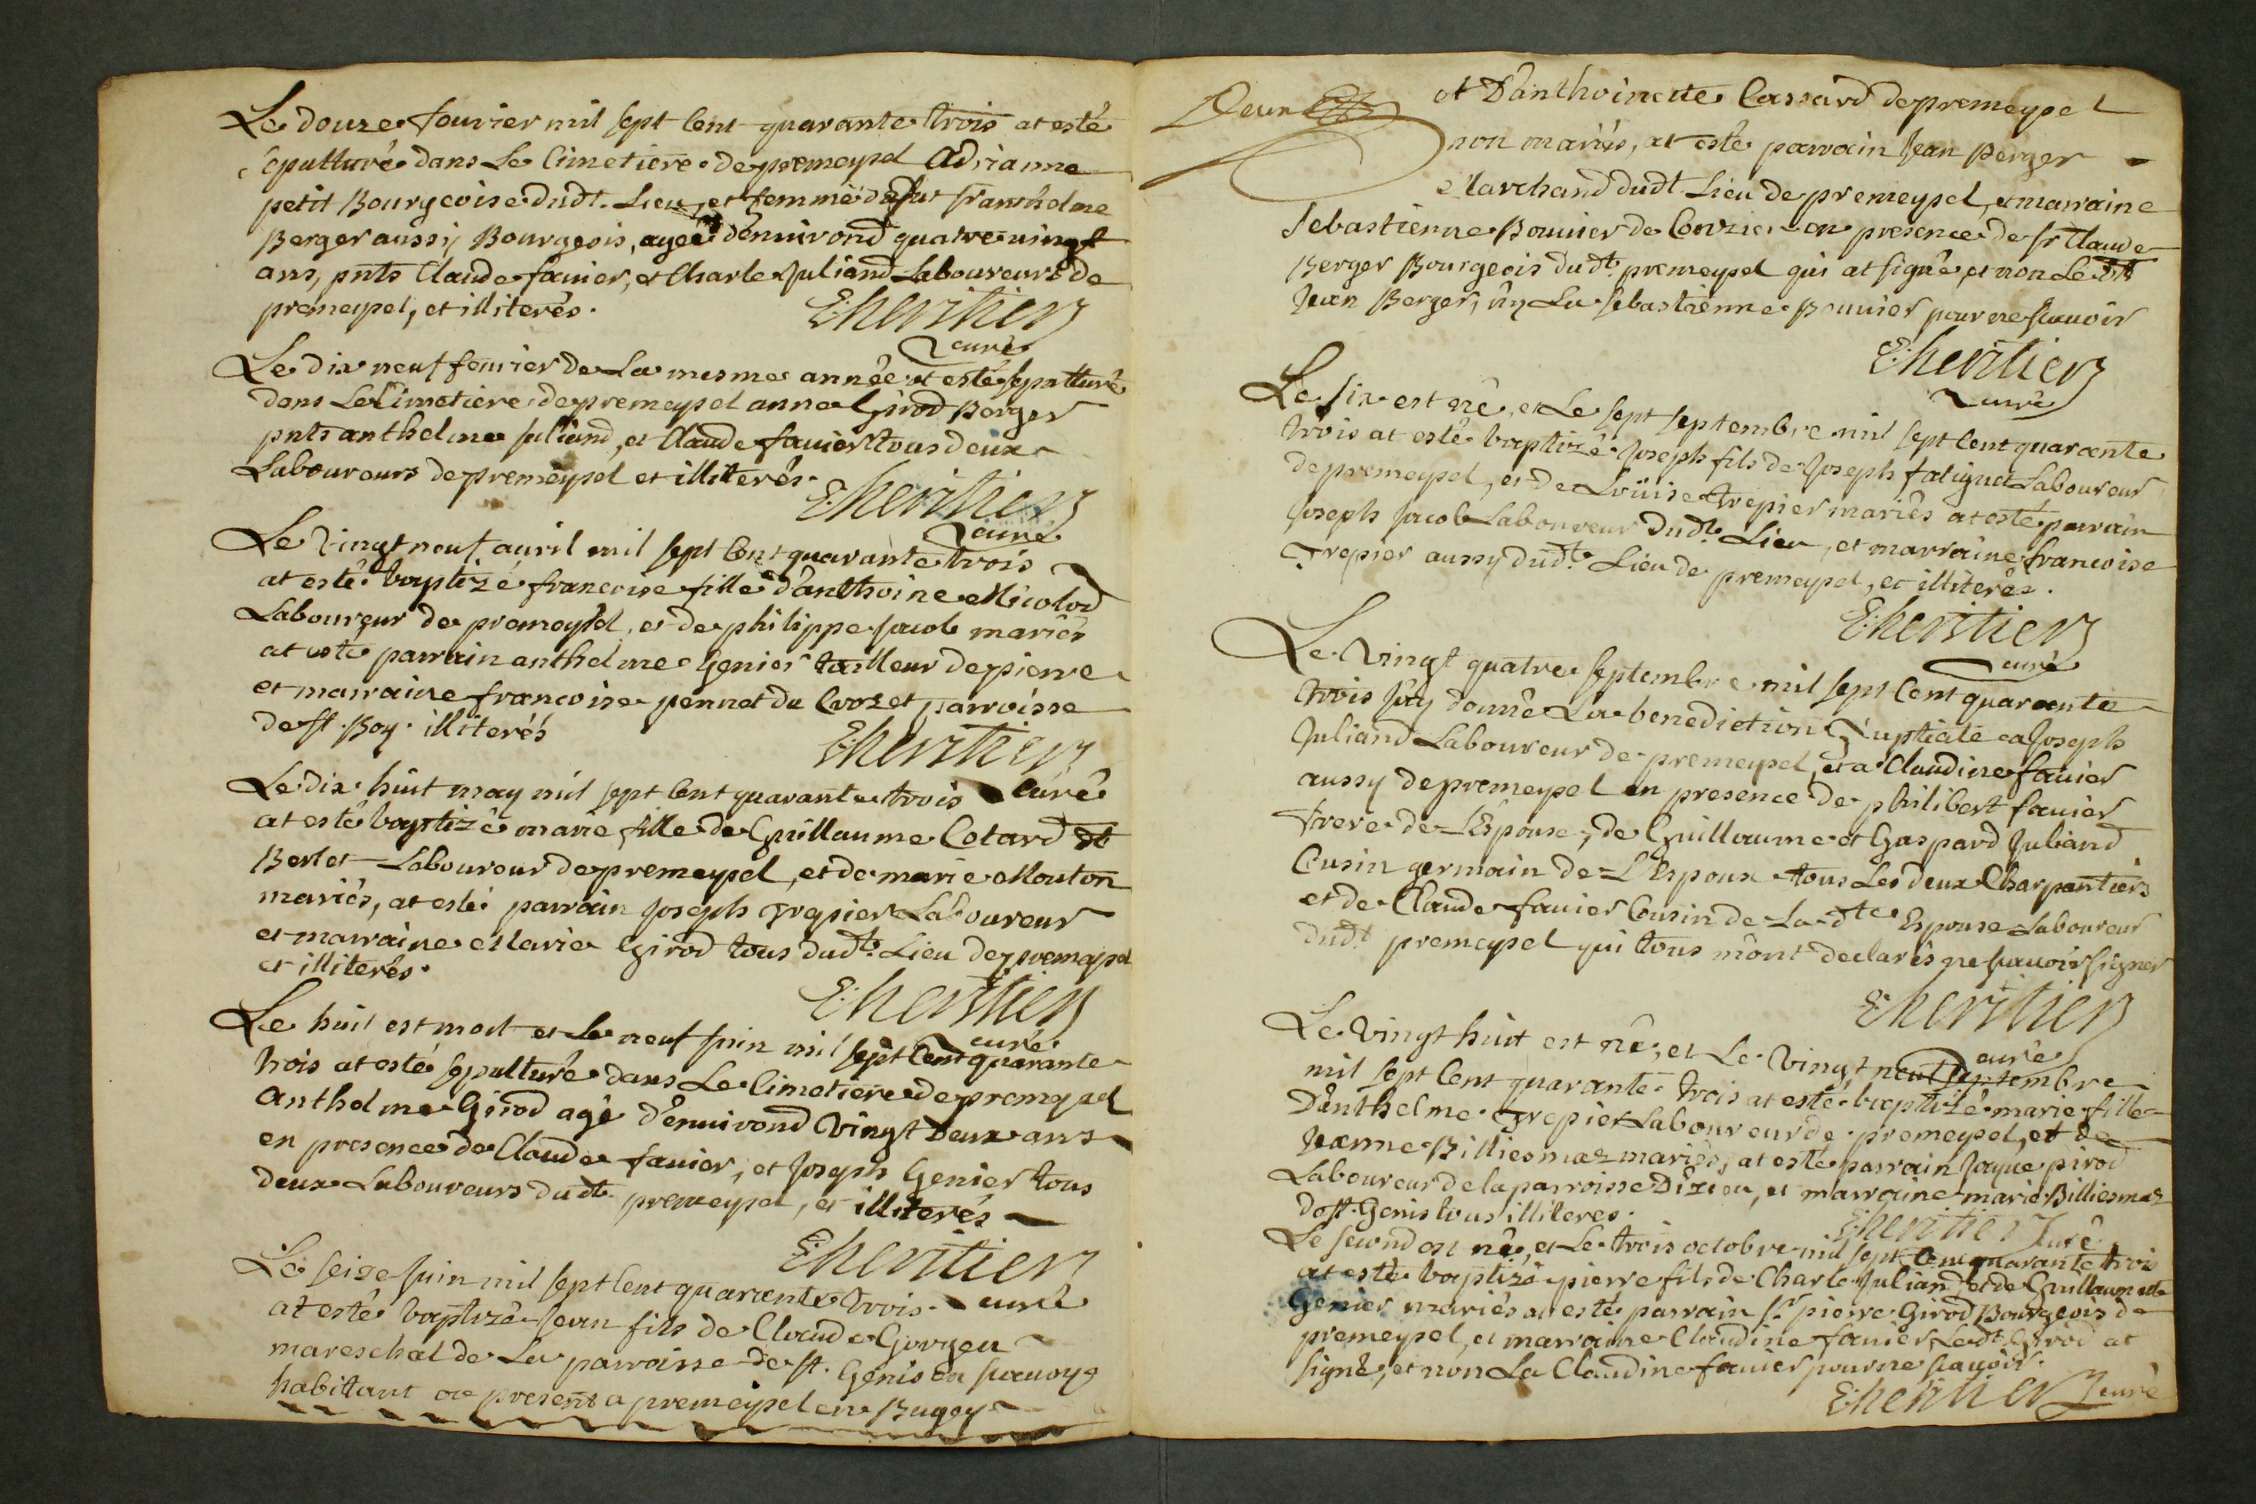 Le douze fevrier mil sept Cent quarante trois at esté
sépulturé dans Le Cimetiere de premeysel Adrianne
petit Bourgeoise dudt. Lieu, et femme de fut franthelme
Berger aussy Bourgeois, agée d'énnirond quatre uingt
ans, pnts Claude fauier, et Charle Juliand Laboureurs de
premeysel, et illiterés.
E: heritier
curé
Le dix neuf feurier de La mesme année at esté sepulturé
dans Le Cimetiere de premeysel anne Girod Berger
pnts anthelme Juliand, et Claude fauier tous deux
Laboureurs de premeysel et illiterés.
E: heritier
curé
Le Vingt neuf auril mil sept Cent quarante trois
at esté baptizé francoise fille d'anthoine Micolod
Laboureur de premeysel, et de philippe Jacob mariés
at esté parrain anthelme Genier tailleur de pierre
et marraine francoise pennet de Crozet parroisse
de st. Boy. illiterés
E: heritier
Curé
Le dix huit may mil sept Cent quarante trois
at esté baptizé marie fille de Guillaume Cotard dt
Berlet Laboureur de premeysel, et de marie Mouton
mariés, at esté parrain Joseph Trepier Laboureur
et marraine Marie Girod tous dudt. Lieu de premeysel
et illiterés.
E: heritier
curé
Le huit est mort et le neuf juin mil sept Cent quarante
trois at esté sepulturé dans Le Cimetiere de premeysel
Anthelme Girod agé d'énuirond Vingt Deux ans
en presence de Claude fauier, et Joseph Genier tous
deux Laboureurs dudt. premeysel, et illiterés
E: heritier
curé
Le seize juin mil sept Cent quarante trois
at esté baptizé Jean fils de Claude Gorgeu
mareschal de La parroisse de st. Genis en sauoye
habittant au present a premeysel en Bugey
et D'anthoinette Cassard de premeysel
non mariés, at esté parrain Jean Berger
Marchand dudt. Lieu de premeysel, et marraine
Sebastienne Bouuier de Conzieu en presence de sr Claude
Berger Bourgeois dudt. premeysel qui at signé, et non Le dt
Jean Berger, ny La Sebastienne Bouuier pour ne scauoir
E: heritier
curé
Le six est né, et Le sept septembre mil sept Cent quarante
trois at esté baptizé Joseph fils de Joseph fatignet Laboureur
de premeysel, et de Loüise trepier mariés at esté parrain
Joseph Jacob Laboureur Dudt. Lieu, et marraine francoise
Trepier aussy dudt. Lieu de premeysel, et illiterés.
E: heritier
curé
Le Vingt quatre septembre mil sept Cent quarante
trois j'ay donné La benediction Nuptiale a Joseph
Juliand Laboureur de premeysel, et a Claudine fauier
aussy de premeysel en presence de philibert fauier
frere de L'Espouse, de Guillaume et Gaspard Juliand
Cusin germain de L'Espoux tous Les deux Charpentiers
et de Claude fauier Cousin de La dte Espouse Laboureur
dudt. premeysel qui tous m'ont declarés ne scauoir signer
E: heritier
curé
Le Vingt huit est né, et Le Vingt neuf septembre
mil sept Cent quarante trois at esté baptizé marie fille
D'anthelme Trepier Laboureur de premeysel, et de
Jeanne Billiemaz mariés, at esté parrain Jaque pirod
Laboureur de la parroisse D'izieu, et marraine marie Billiemaz
de st. Genis tous illiteres.
E: heritier Curé
Le second est né, et Le trois octobre mil sept Cent quarante trois
at esté baptizé pierre fils de Charle Juliand, et de Guillaumette
Genier mariés at esté parrain sr pierre Girod Bourgeois de
premeysel, et marraine Claudine fauier, Le dt. Girod at
signé, et non La Claudine fauier pour ne scauoir.
E: heritier curé